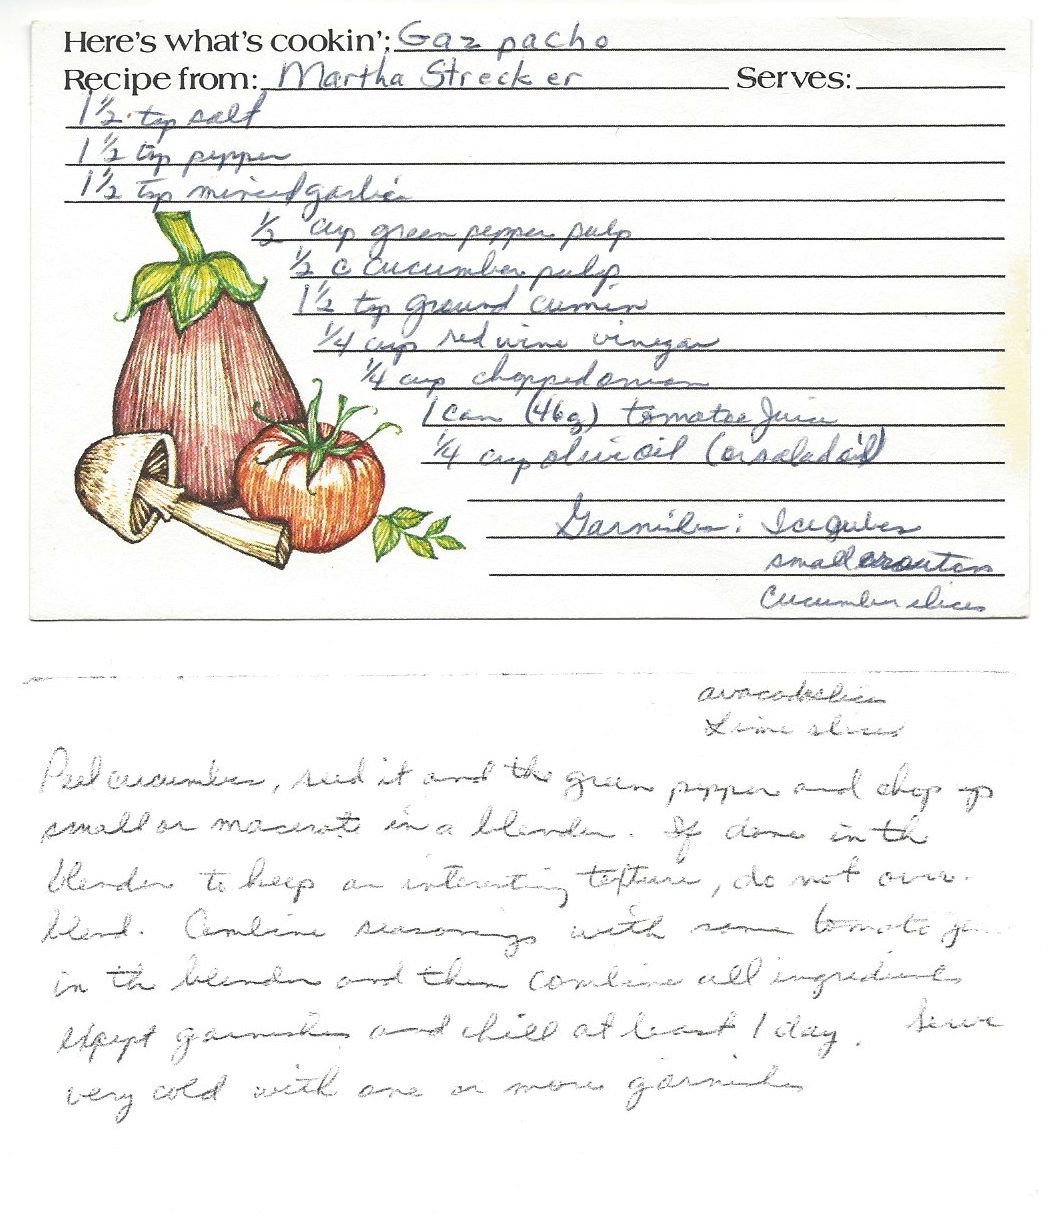 Here's what's cookin': Gazpacho
Recipe from: Martha Strecker Serves:
1 1/2 tsp salt
1 1/2 tsp pepper
1 1/2 tsp minced garlic
1/2 cup green pepper pulp
1/2 c cucumber pulp
1 1/2 tsp ground cumin
1/4 cup red wine vinegar
1/4 cup chopped onion
1 can (46g) tomatoe juice
1/4 cup olive oil (or salad oil)
Garnishes: Ice cubes
small croutons
Cucumber slices
Lime slices
Peel cucumber, seed it and the green pepper and chop up
small or macerate in a blender. If done in the
blender to keep an interesting texture, do not over-
blend. Combine seasonings with some tomato
in the blender and then combine all ingredients
expept garnishes and chill at least 1 day. Serve
very cold with one or more garnishes